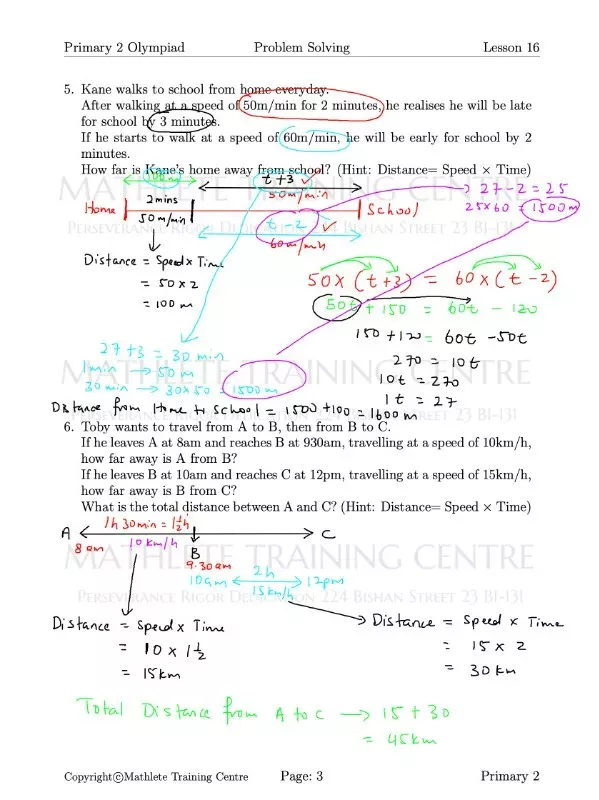 Primary 2 Olympiad Problem Solving Lesson 16
5. Kane walks to school from home everyday.
After walking at a speed of 50m/min for 2 minutes, he realises he will be late
for school by 3 minutes.
If he starts to walk at a speed of 60m/min, he will be early for school by 2
minutes.
How far is Kane's home away from school? (Hint: Distance= Speed × Time)
MATHLETE TRAINING CENTRE
100m t+3 → 27-2 = 25
2mins 50m/min 25x60 = 1500m
Home School
50m/min t-2
PERSEVERANCE RIGOR DEDICATION 224 BISHAN STREET 23 B1-131
60m/min
Distance = Speed x Time
= 50 x 2
= 100m
50x(t+3) = 60x(t-2)
50t + 150 = 60t - 120
150 + 120 = 60t - 50t
270 = 10t
10t = 270
1t = 27
27+3 = 30 min
1min → 50m
30min → 30x50 = 1500m
MATHLETE TRAINING CENTRE
Distance from Home to School = 1500+100 = 1600m
PERSEVERANCE RIGOR DEDICATION 224 BISHAN STREET 23 B1-131
6. Toby wants to travel from A to B, then from B to C.
If he leaves A at 8am and reaches B at 930am, travelling at a speed of 10km/h,
how far away is A from B?
If he leaves B at 10am and reaches C at 12pm, travelling at a speed of 15km/h,
how far away is B from C?
What is the total distance between A and C? (Hint: Distance= Speed × Time)
1h 30min = 1½h
A C
8am 10km/h B
MATHLETE TRAINING CENTRE
9.30am
10am 2h 12pm
15km/h
PERSEVERANCE RIGOR DEDICATION 224 BISHAN STREET 23 B1-131
Distance = Speed x Time
= 10 x 1½
= 15km
→ Distance = Speed x Time
= 15 x 2
= 30km
Total Distance from A to C → 15+30
= 45km
Copyright©Mathlete Training Centre Page: 3 Primary 2